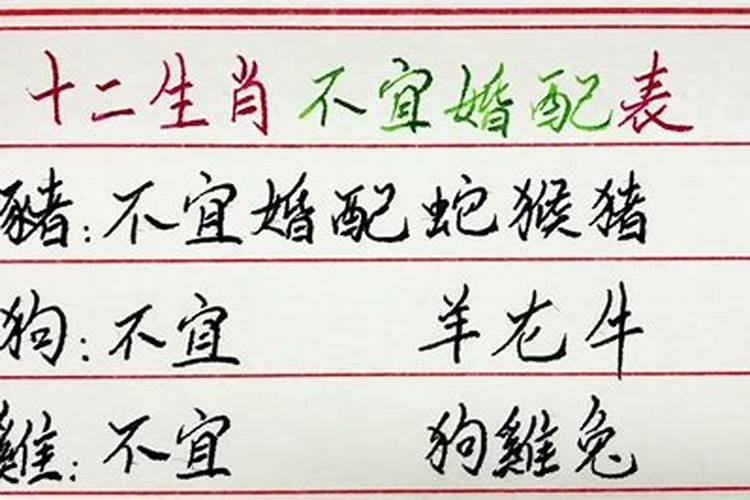 十二生肖不宜婚配表
豬:不宜婚配蛇猴猪
狗:不宜 羊龙牛
雞:不宜 狗雞兔